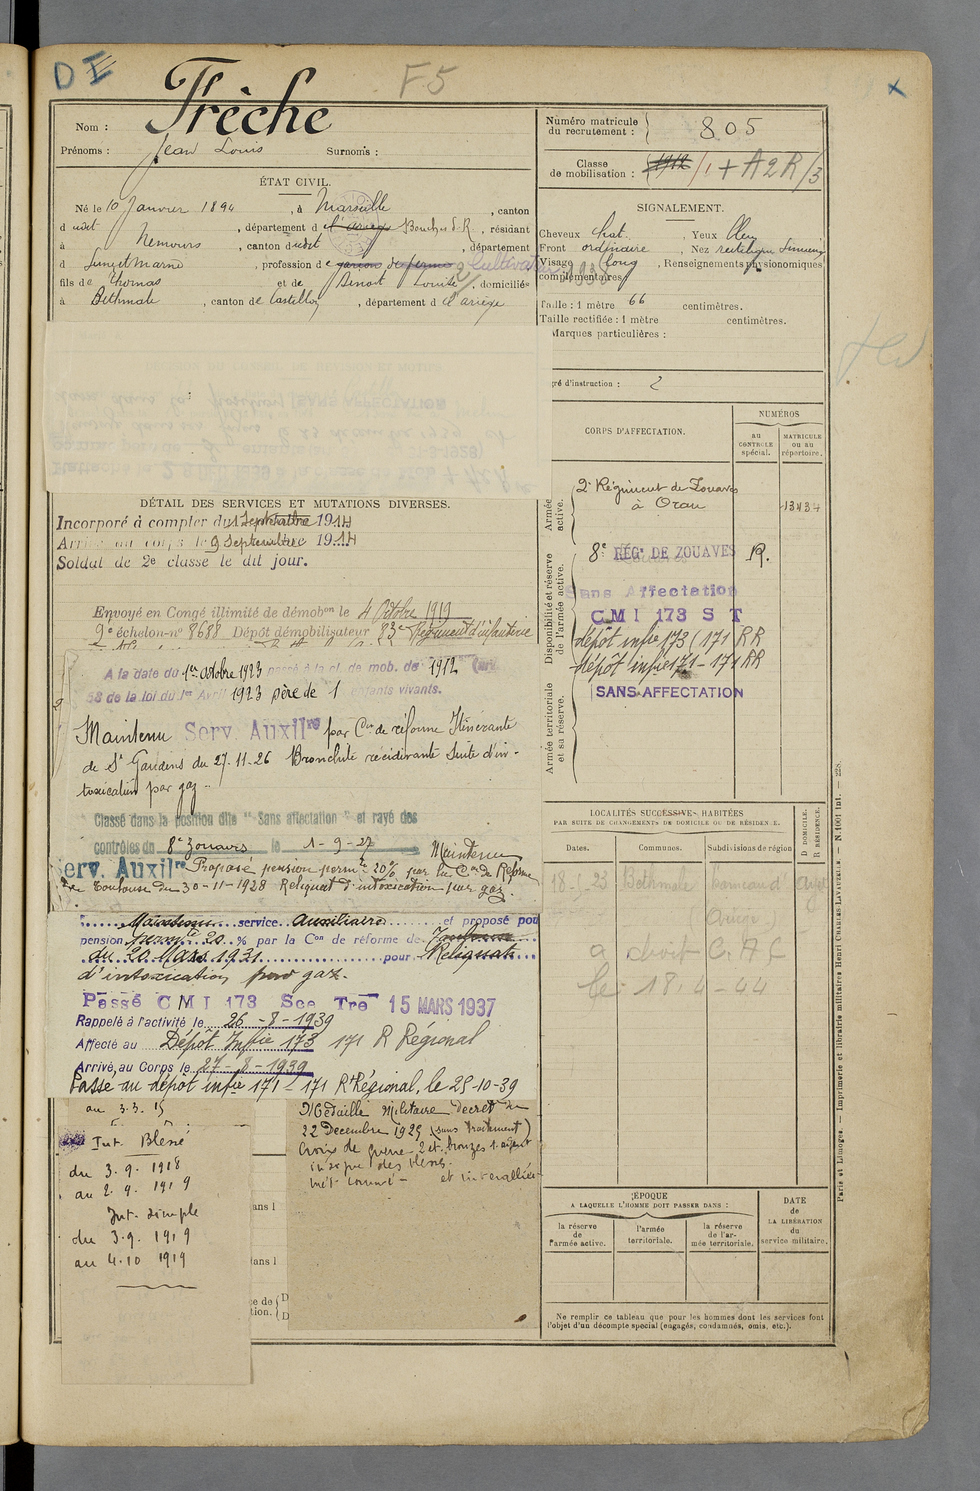 DE
F5
x
Nom : Frèche
Prénoms : Jean Louis Surnoms :
ÉTAT CIVIL.
Né le 10 Janvier 1894, à Marseille, canton
d udit, département d l'ariège Bouches d. R, résidant
à Nemours, canton dudit, département
d Seine et Marne, profession de garçon de ferme Cultivateur
fils de Thomas et de Benoit Louise, domiciliés
à Bethmale, canton de Castillon, département d l'ariège
Numéro matricule du recrutement : 805
Classe de mobilisation : 1912 /1 + A2R/3
SIGNALEMENT.
Cheveux chat., Yeux bleu
Front ordinaire, Nez rectiligne
Visage long, Renseignements physionomiques
complémentaires :
Taille : 1 mètre 66 centimètres.
Taille rectifiée : 1 mètre centimètres.
Marques particulières :
gré d'instruction : 2
DÉTAIL DES SERVICES ET MUTATIONS DIVERSES.
Incorporé à compter du 1 Septembre 1914
Arrivé au corps le 9 Septembre 1914
Soldat de 2e classe le dit jour.
Envoyé en Congé illimité de démobon le 4 Octobre 1919
2e échelon-no 8688 Dépôt démobilisateur 83e Régiment d'infanterie
A la date du 1er octobre 1923 passé à la cl. de mob. de 1912 (art.
58 de la loi du 1er Avril 1923 père de 1 enfants vivants.
Maintenu Serv. Auxilre par Con de réforme Itinérante
de St Gaudens du 27-11-26 Bronchite récidivante suite d'in-
toxication par gaz -
Classé dans la position dite "Sans affectation" et rayé des
contrôles du 8e Zouaves le 1-9-27
Maintenu
Serv. Auxilre Proposé pension permte 20% par la Con de Réforme
de Toulouse du 30-11-1928 Reliquat d'intoxication par gaz.
Maintenu service Auxiliaire et proposé pour
pension permte 20 % par la Con de réforme de Toulouse
du 20 Mars 1931 pour Reliquats
d'intoxication par gaz.
Passé CMI 173 Sce Tre 15 MARS 1937
Rappelé à l'activité le 26-8-1939
Affecté au Dépôt Infie 173 171 R Régional
Arrivé au Corps le 27-8-1939
Passé au dépôt infie 171 - 171 Rt Régional, le 25-10-39
au 3.3.15
Int. Blessé
du 3.9.1918
au 2.9.1919
Int. simple
du 3.9.1919
au 4.10 1919
Médaille Militaire Décret du
22 Decembre 1925 (sans traitement)
Croix de guerre 2 et. bronzes 1 argent
insigne des blessés.
et interalliée
CORPS D'AFFECTATION.
NUMÉROS
au CONTROLE spécial.
MATRICULE ou au répertoire.
Armée active.
2e Régiment de Zouaves
à Oran
13434
Disponibilité et réserve de l'armée active.
8e RÉGt DE ZOUAVES R.
Sans Affectation
CMI 173 S T
dépôt infie 173 (171 RR
dépôt infie 171 - 171 RR
SANS AFFECTATION
Armée territoriale et sa réserve.
LOCALITÉS SUCCESSIVES HABITÉES
PAR SUITE DE CHANGEMENTS DE DOMICILE OU DE RÉSIDENCE.
Dates.
Communes.
Subdivisions de région
D. DOMICILE. R. RÉSIDENCE.
Bethmale
a droit C.A.C
le 18-4-44
ÉPOQUE
A LAQUELLE L'HOMME DOIT PASSER DANS :
la réserve de l'armée active.
l'armée territoriale.
la réserve de l'armée territoriale.
DATE de LA LIBÉRATION du service militaire.
Ne remplir ce tableau que pour les hommes dont les services font
l'objet d'un décompte spécial (engagés, condamnés, omis, etc.).
Paris et Limoges. — Imprimerie et librairie militaires Henri CHARLES-LAVAUZELLE — N. 1001 Int. — 228.